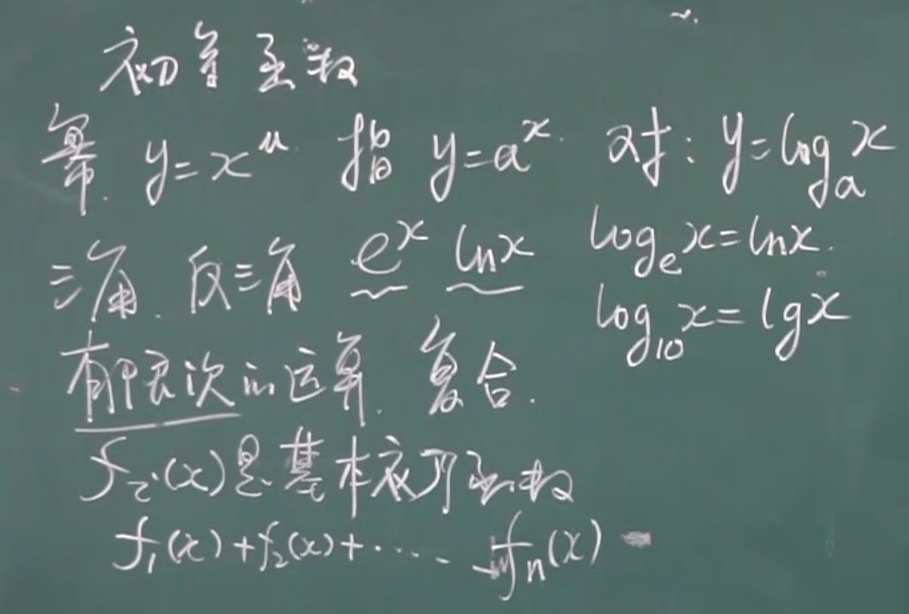 初等函数
幂. y=x^u. 指 y=a^x. 对: y=log_a x
三角. 反三角 e^x ln x log_e x=lnx.
log_10 x=lgx
有限次的运算. 复合.
f_i(x)是基本初等函数
f_1(x)+f_2(x)+····· f_n(x)